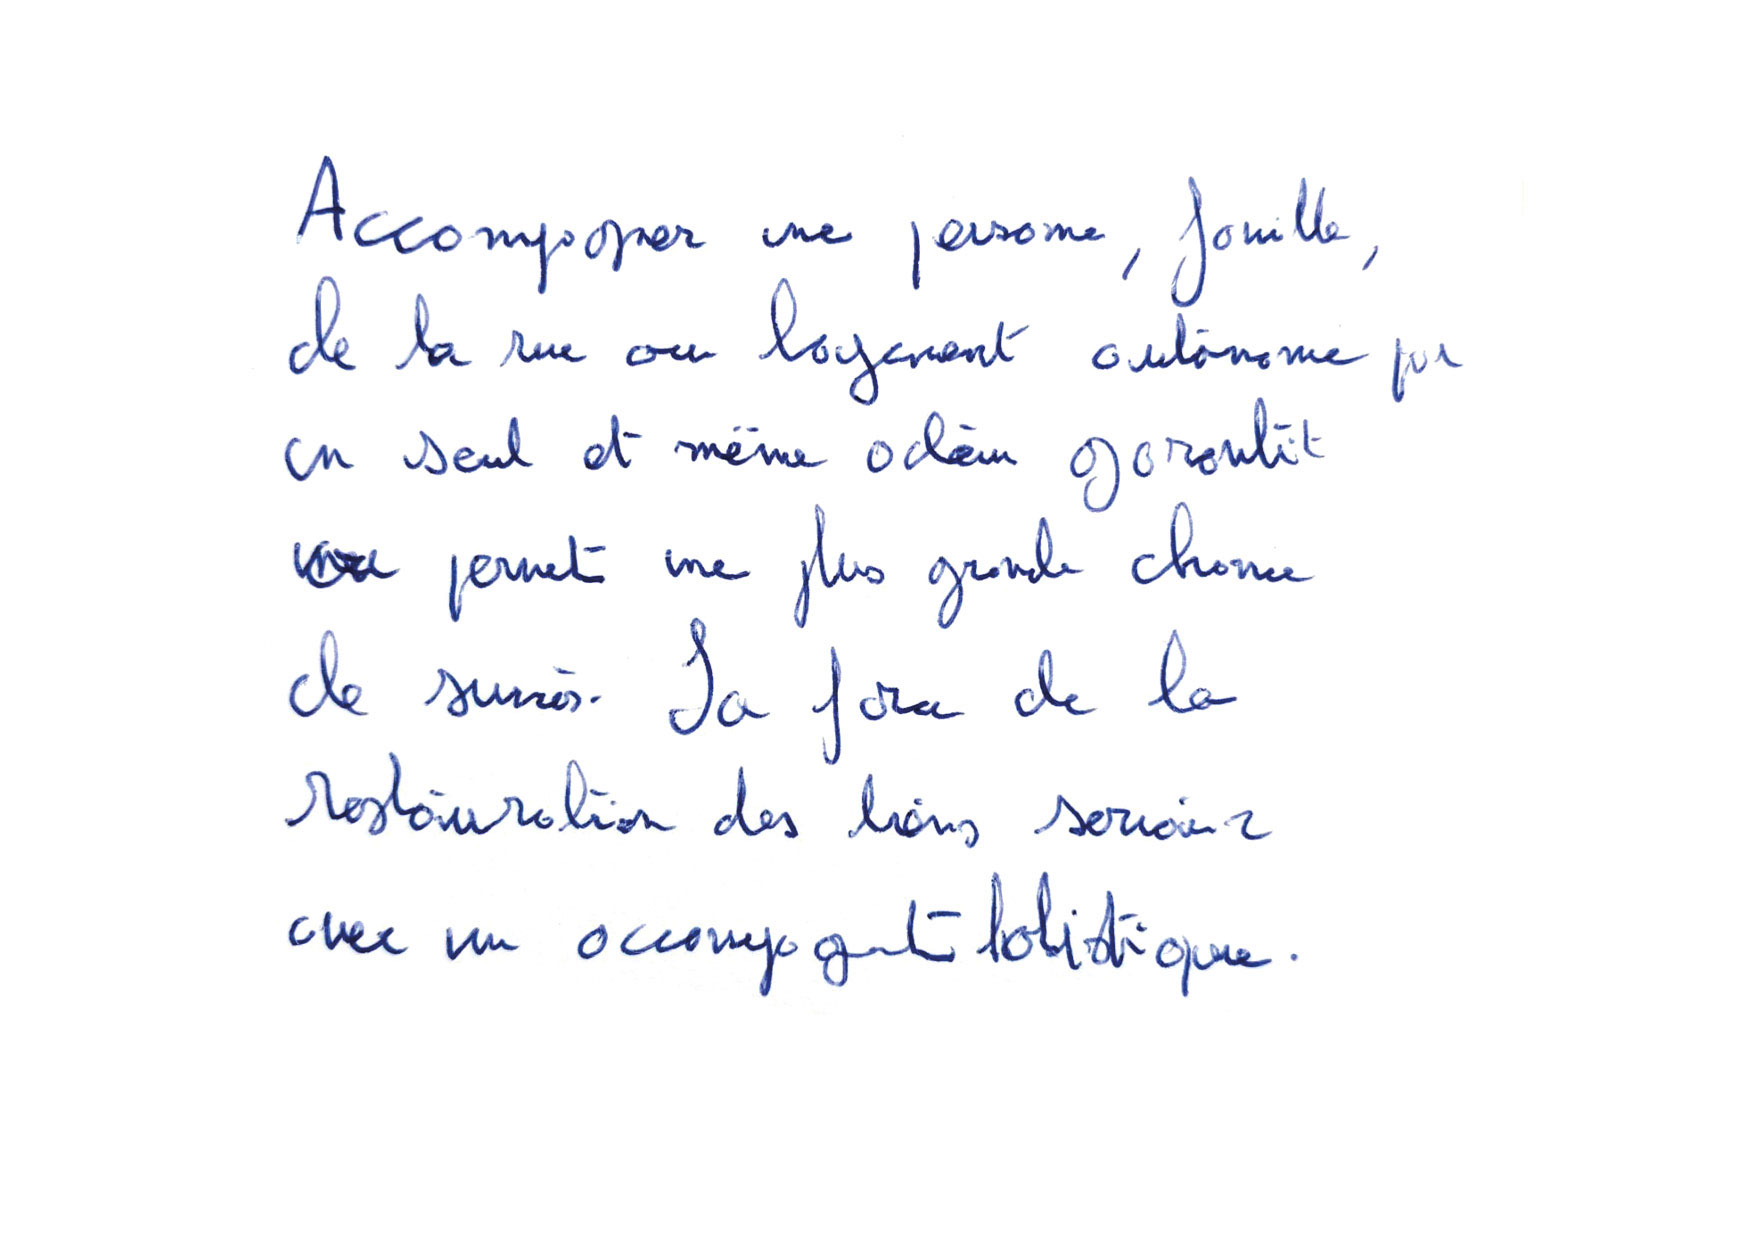 Accompagner une personne, famille,
de la rue au logement autonome par
un seul et même acteur garantit
permet une plus grande chance
de succès. La force de la
restauration des liens sociaux
avec un accompagnt holistique.